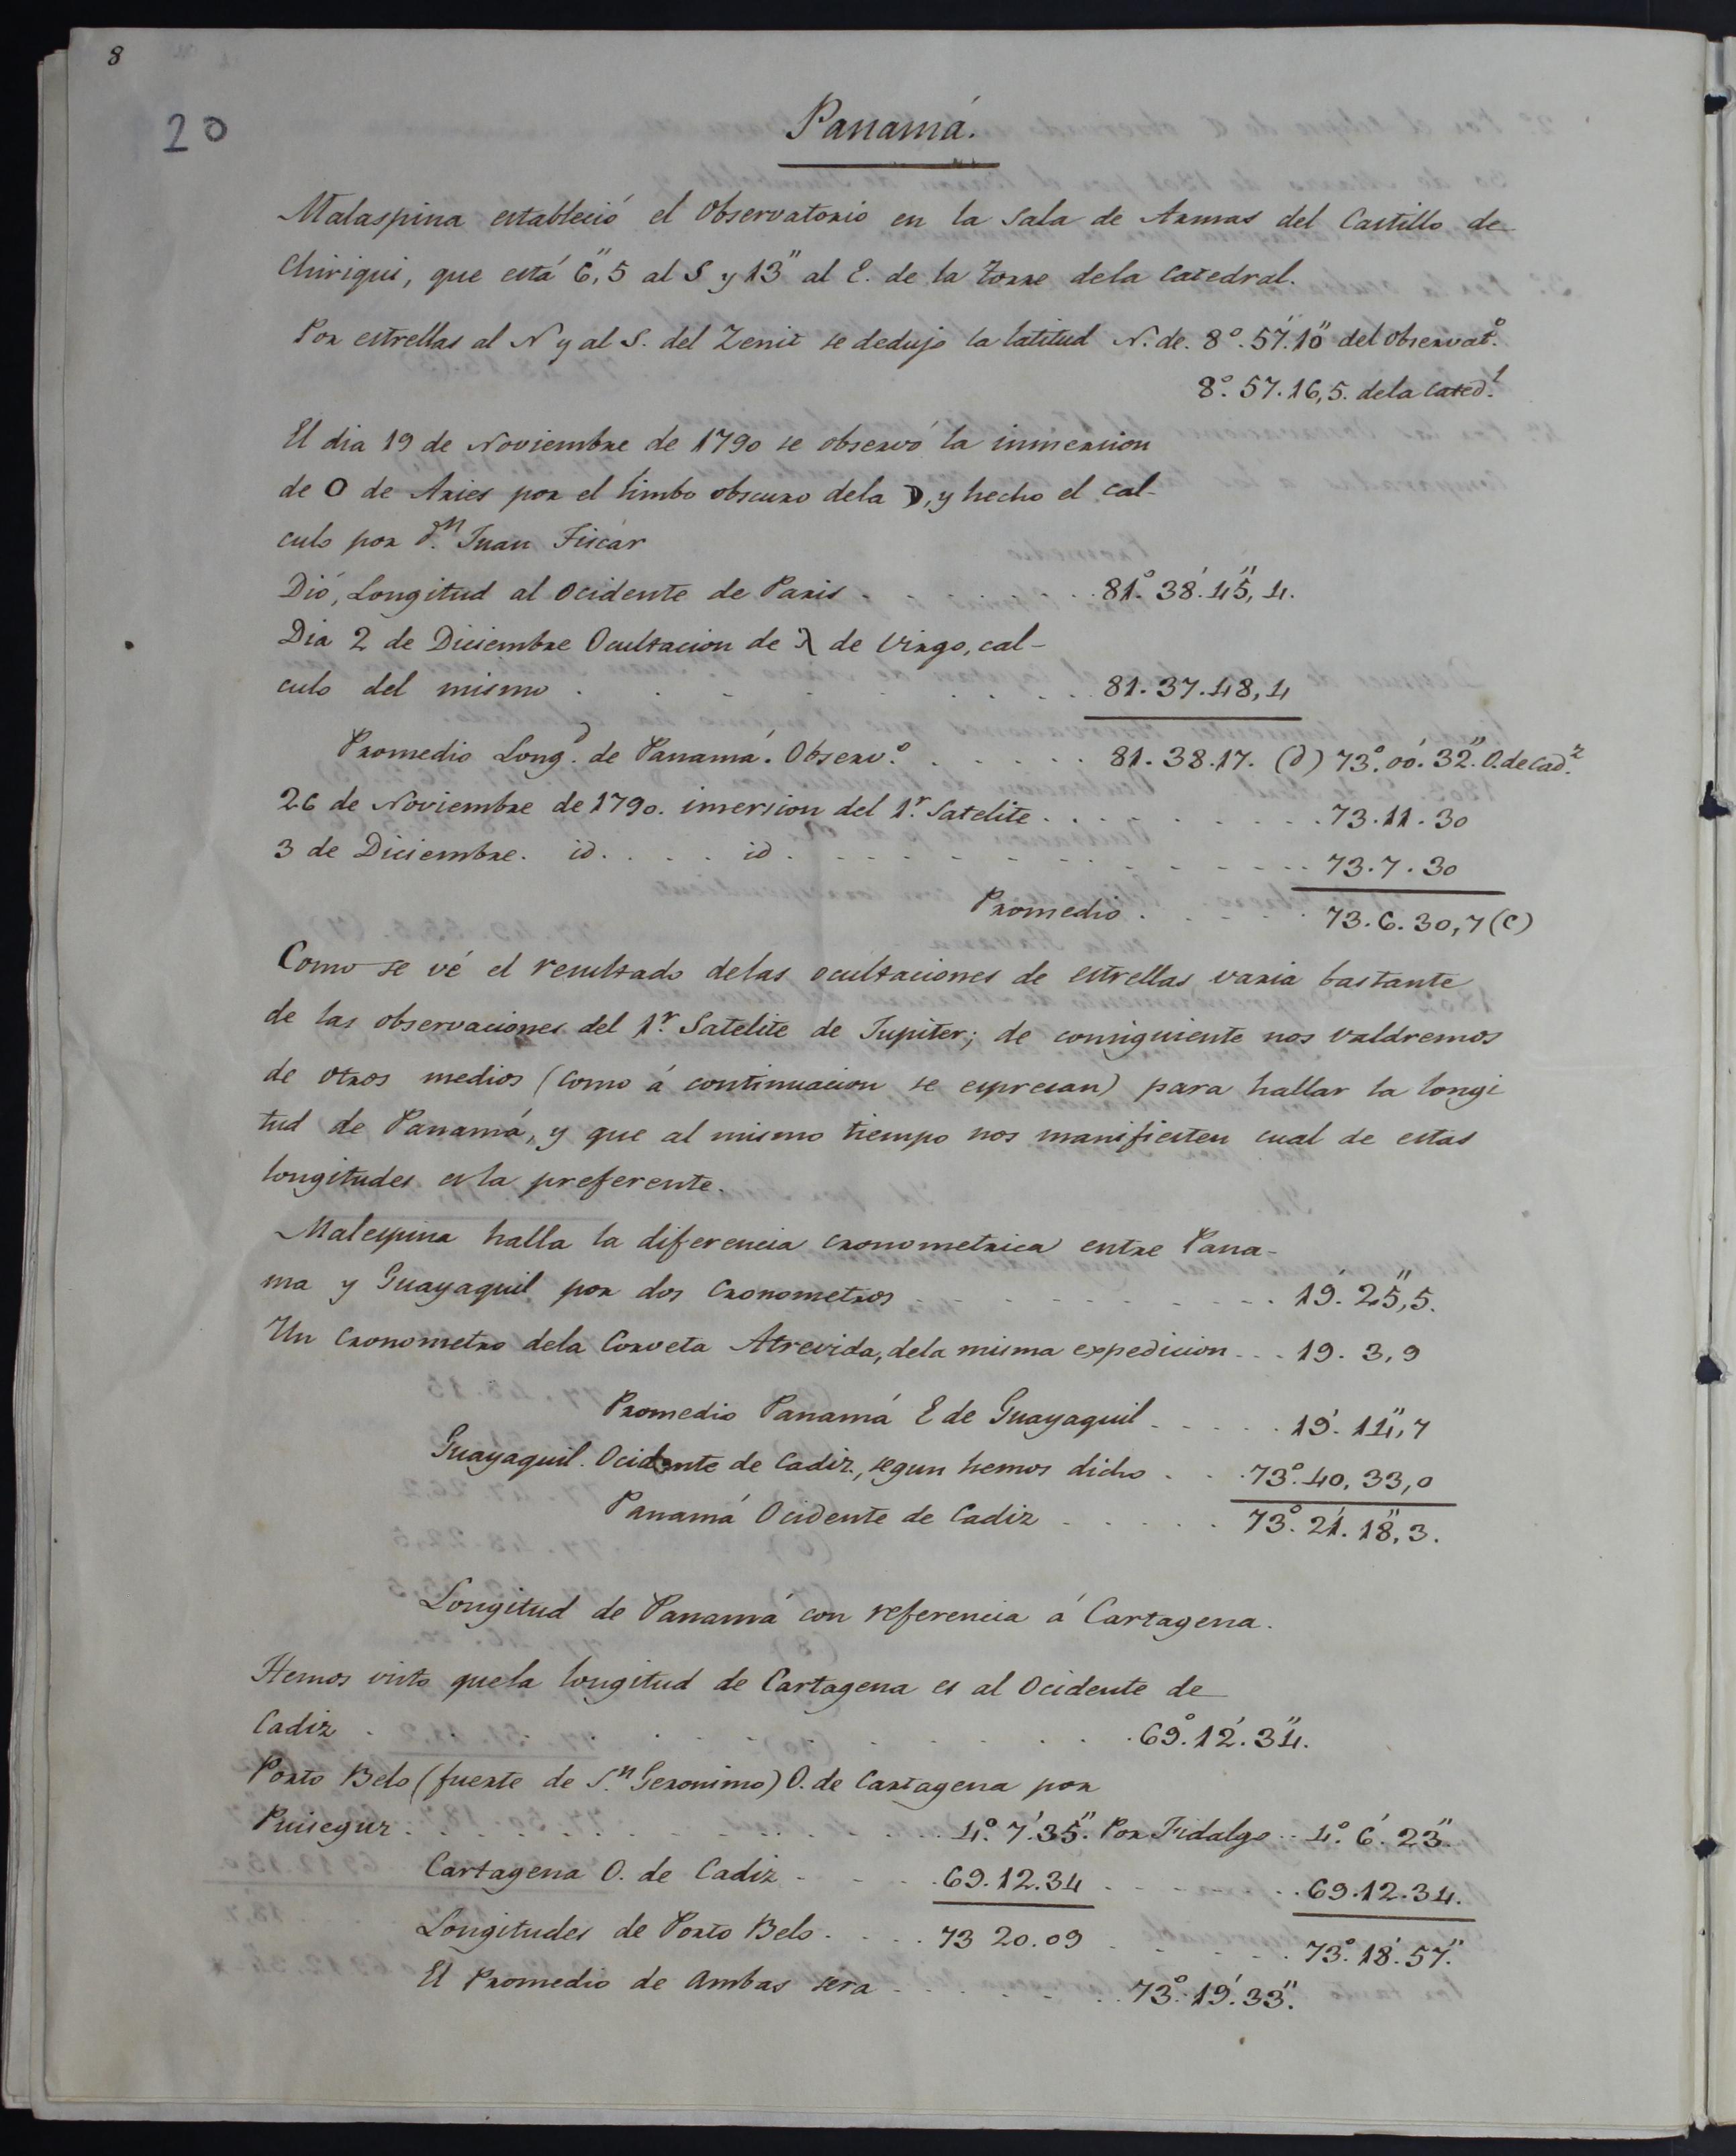 8
20
Panamá.
Malaspina estableció el Observatorio en la Sala de Armas del Castillo de
Chiriqui, que está 6",5 al S. y 13" al E. de la Torre dela Catedral.
Por estrellas al N y al S. del Zenit se dedujo la latitud N. de. 8°. 57'. 10" del Observat.º
8°. 57. 16,5. dela Cated.l
El dia 19 de Noviembre de 1790 se observó la inmersion
de O de Aries por el limbo obscuro dela ☽, y hecho el cal-
culo por D.n Juan Fiscár
Dió, Longitud al Ocidente de Paris . . . . . . 81°. 38'. 45",4.
Dia 2 de Diciembre Ocultacion de λ de Virgo, cal-
culo del mismo . . . . . . . . 81. 37. 48,4
Promedio Long.d de Panamá. Observ.º . . . . . . 81. 38. 17. (d) 73°. 00'. 32". O. de Cad.z
26 de Noviembre de 1790. imersion del 1.r Satelite . . . . . . . . . 73. 11. 30
3 de Diciembre. id. . . . id . . . . . . . . . . . . . 73. 7. 30
Promedio . . . . . 73. 6. 30,7 (c)
Como se vé el resultado delas ocultaciones de estrellas varia bastante
de las observaciones del 1.r Satelite de Jupiter; de consiguiente nos valdremos
de otros medios (como á continuacion se espresan) para hallar la longi
tud de Panamá, y que al mismo tiempo nos manifiesten cual de estas
longitudes es la preferente.
Malespina halla la diferencia cronometrica entre Pana-
ma y Guayaquil por dos Cronometros . . . . . . . . . . 19'. 25",5.
Un Cronometro dela Corveta Atrevida, dela misma expedicion . . . 19. 3,9
Promedio Panamá E de Guayaquil . . . . . 19'. 14",7
Guayaquil. Ocidente de Cadiz, segun hemos dicho . . . 73°. 40, 33,0
Panamá Ocidente de Cadiz . . . . . 73°. 21'. 18",3.
Longitud de Panamá con referencia á Cartagena.
Hemos visto quela longitud de Cartagena es al Ocidente de
Cadiz . . . . . . . . . . . . . 69°. 12'. 34".
Porto Belo (fuerte de S.n Geronimo) O. de Cartagena por
Puisegur . . . . . . . . . . . . . 4°. 7'. 35". Por Fidalgo . . 4°. 6'. 23".
Cartagena O. de Cadiz . . . . 69. 12. 34 . . . . . . . 69. 12. 34.
Longitudes de Porto Belo . . . . 73 20. 09 . . . . . . 73°. 18'. 57".
El Promedio de Ambas sera . . . . . . . 73°. 19'. 33".